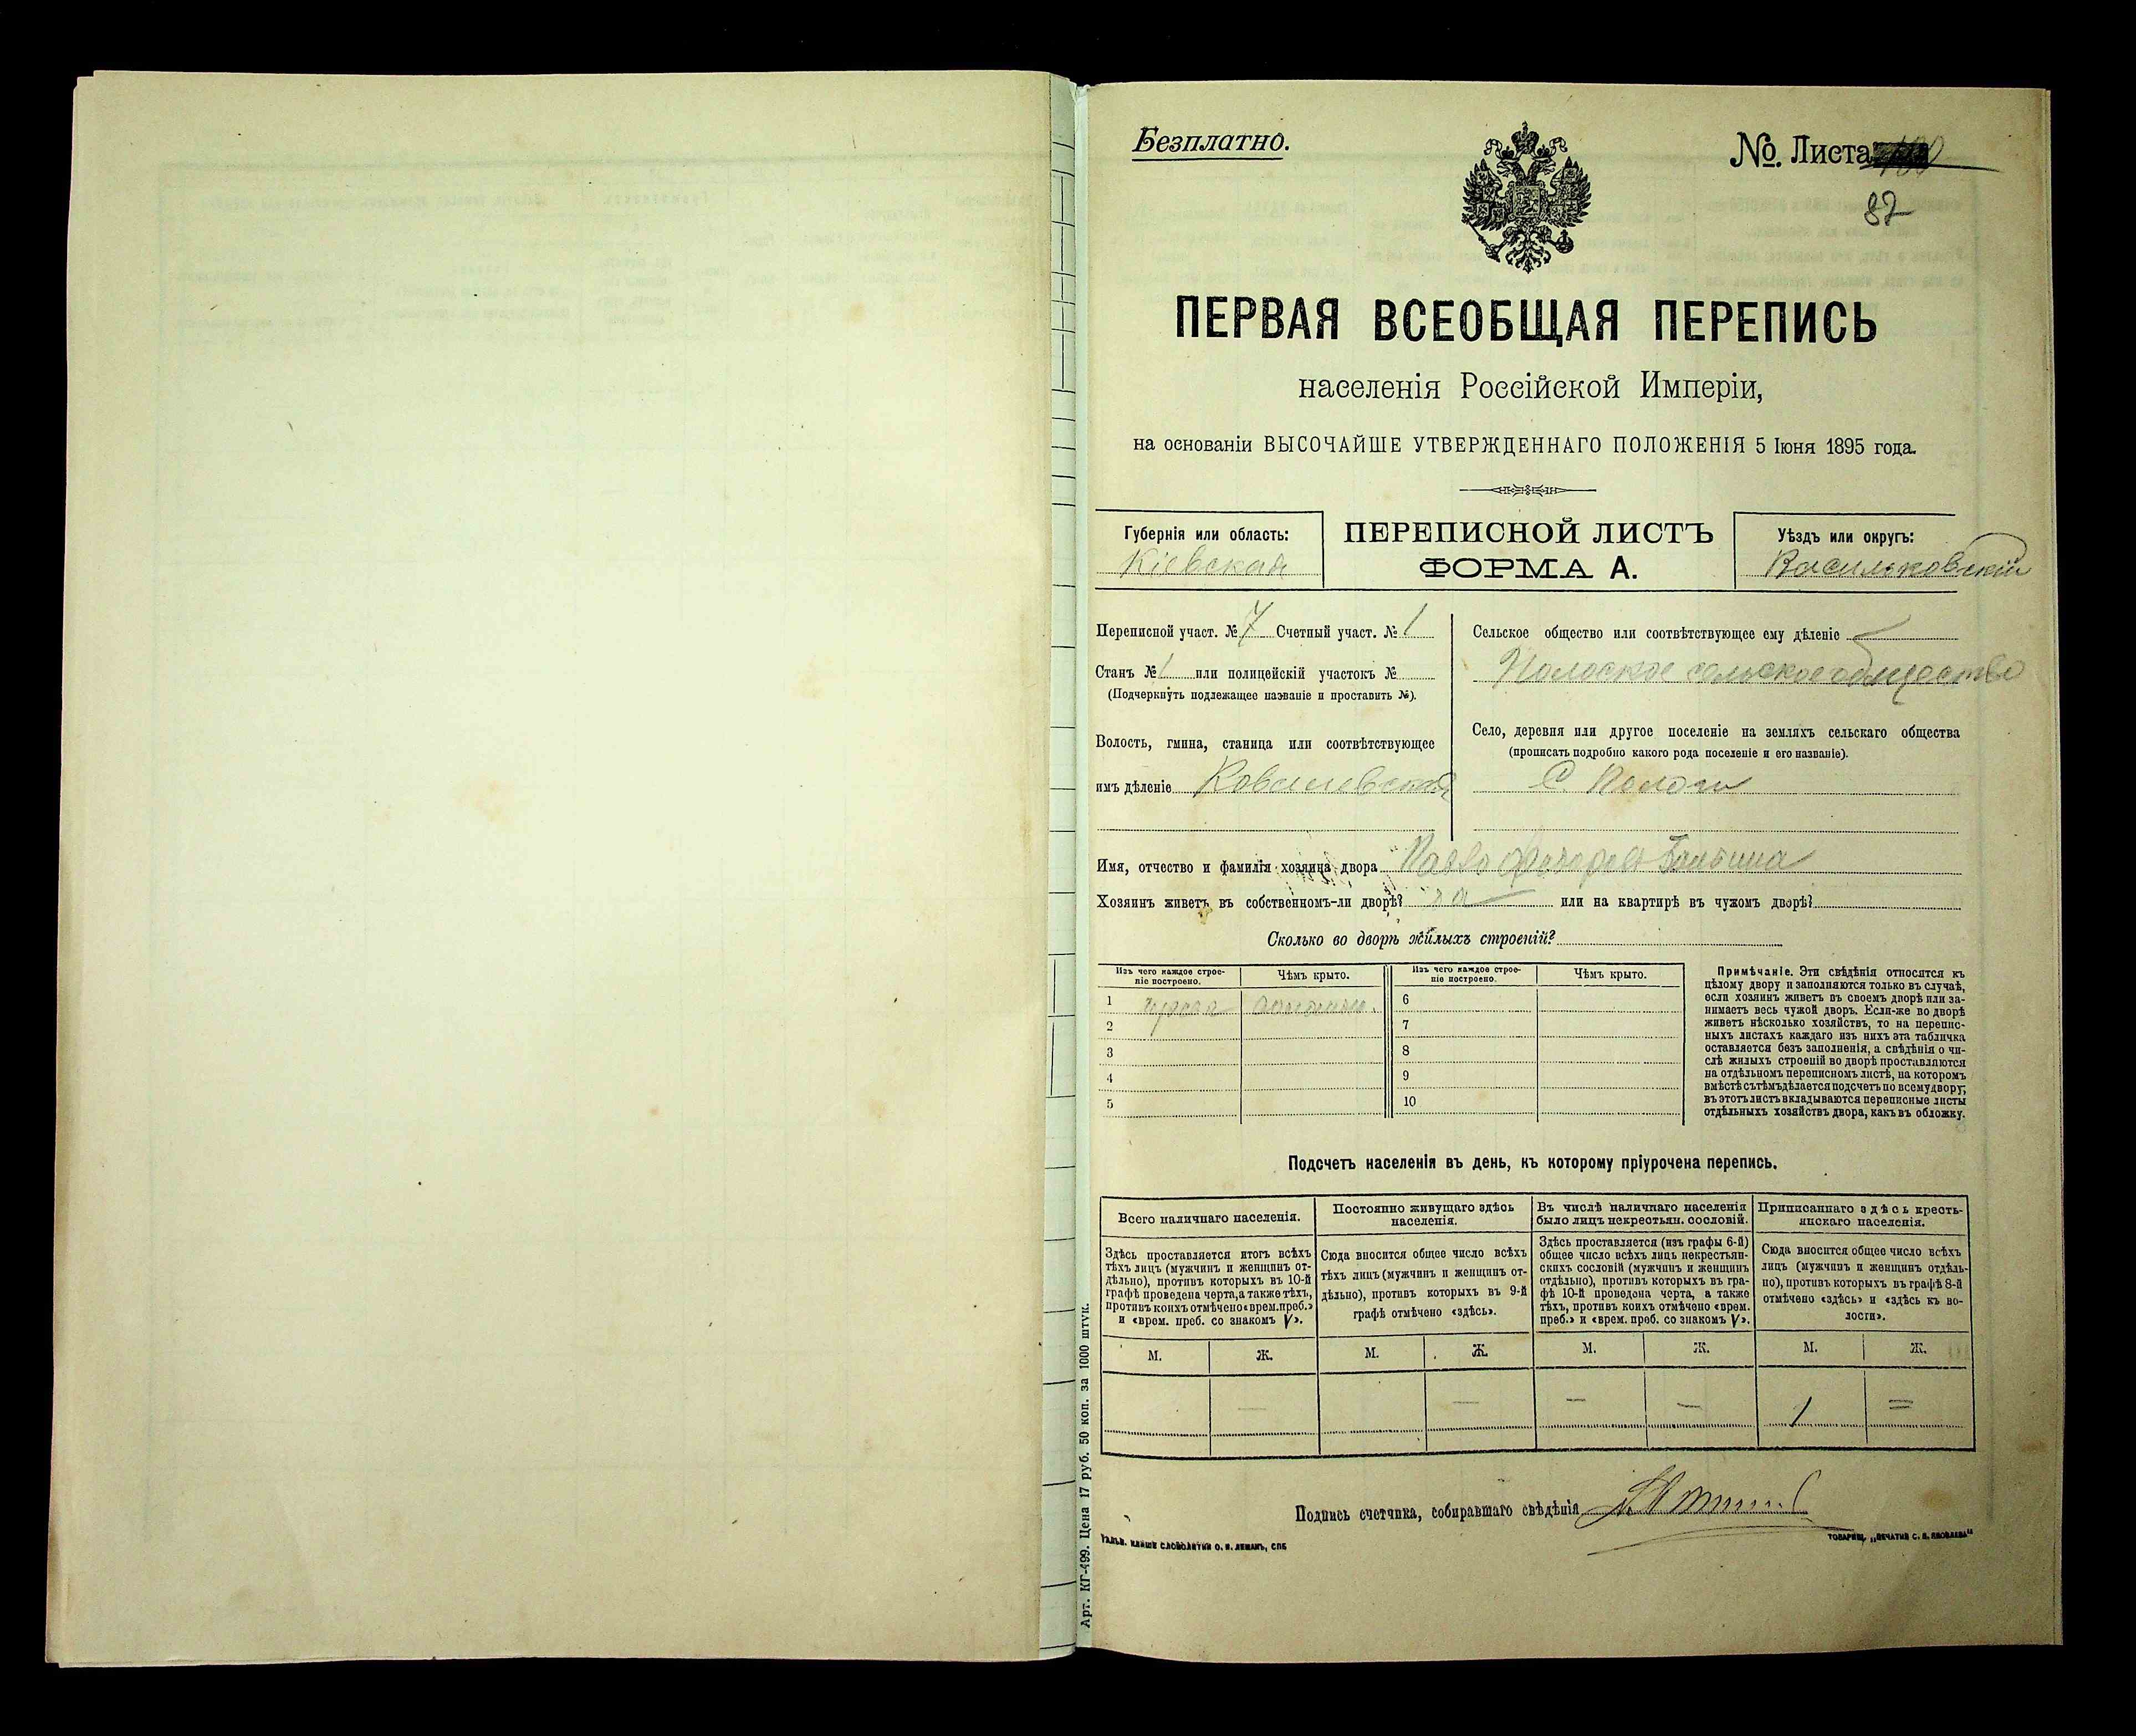 Безплатно.
№. Листа
87
ПЕРВАЯ ВСЕОБЩАЯ ПЕРЕПИСЬ
населенія Россійской Имперіи,
на основаніи ВЫСОЧАЙШЕ УТВЕРЖДЕННАГО ПОЛОЖЕНІЯ 5 Іюня 1895 года.
Губернія или область:
Кіевская
ПЕРЕПИСНОЙ ЛИСТЪ
ФОРМА А.
Уѣздъ или округъ:
Васильковскій
Переписной участ. № 7 Счетный участ. № 1
Станъ № 1 или полицейскій участокъ №
(Подчеркнуть подлежащее названіе и проставить №).
Волость, гмина, станица или соотвѣтствующее
имъ дѣленіе Ковалевская
Сельское общество или соотвѣтствующее ему дѣленіе
сельское общество
Село, деревня или другое поселеніе на земляхъ сельскаго общества
(прописать подробно какого рода поселеніе и его названіе).
С. Пологи
Имя, отчество и фамилія хозяина двора
Хозяинъ живетъ въ собственномъ-ли дворѣ? или на квартирѣ въ чужомъ дворѣ?
Сколько во дворѣ жилыхъ строеній?
Изъ чего каждое строе-
ніе построено.
Чѣмъ крыто.
Изъ чего каждое строе-
ніе построено.
Чѣмъ крыто.
1
2
3
4
5
6
7
8
9
10
Примѣчаніе. Эти свѣдѣнія относятся къ
цѣлому двору и заполняются только въ случаѣ,
если хозяинъ живетъ въ своемъ дворѣ или за-
нимаетъ весь чужой дворъ. Если-же во дворѣ
живетъ нѣсколько хозяйствъ, то на перепис-
ныхъ листахъ каждаго изъ нихъ эта табличка
оставляется безъ заполненія, а свѣдѣнія о чи-
слѣ жилыхъ строеній во дворѣ проставляются
на отдѣльномъ переписномъ листѣ, на которомъ
вмѣстѣ съ тѣмъ дѣлается подсчетъ по всему двору;
въ этотъ листъ вкладываются переписные листы
отдѣльныхъ хозяйствъ двора, какъ въ обложку.
Подсчетъ населенія въ день, къ которому пріурочена перепись.
Всего наличнаго населенія.
Здѣсь проставляется итогъ всѣхъ
тѣхъ лицъ (мужчинъ и женщинъ от-
дѣльно), противъ которыхъ въ 10-й
графѣ проведена черта, а также тѣхъ,
противъ коихъ отмѣчено «врем. преб.»
и «врем. преб. со знакомъ V».
Постоянно живущаго здѣсь
населенія.
Сюда вносится общее число всѣхъ
тѣхъ лицъ (мужчинъ и женщинъ от-
дѣльно), противъ которыхъ въ 9-й
графѣ отмѣчено «здѣсь».
Въ числѣ наличнаго населенія
было лицъ некрестьян. сословій.
Здѣсь проставляется (изъ графы 6-й)
общее число всѣхъ лицъ некрестьян-
скихъ сословій (мужчинъ и женщинъ
отдѣльно), противъ которыхъ въ гра-
фѣ 10-й проведена черта, а также
тѣхъ, противъ коихъ отмѣчено «врем.
преб.» и «врем. преб. со знакомъ V».
Приписаннаго здѣсь кресть-
янскаго населенія.
Сюда вносится общее число всѣхъ
лицъ (мужчинъ и женщинъ отдѣль-
но), противъ которыхъ въ графѣ 8-й
отмѣчено «здѣсь» и «здѣсь къ во-
лости».
М. Ж. М. Ж. М. Ж. М. Ж.
— — — — 1 =
Подпись счетчика, собиравшаго свѣдѣнія
СЛОВОЛИТНИ О. И. ЛЕМАНЪ, СПБ
ТОВАРИЩ. „ПЕЧАТНЯ С. П. ЯКОВЛЕВА"
Арт. КГ-499. Цена 17 руб. 50 коп. за 1000 штук.